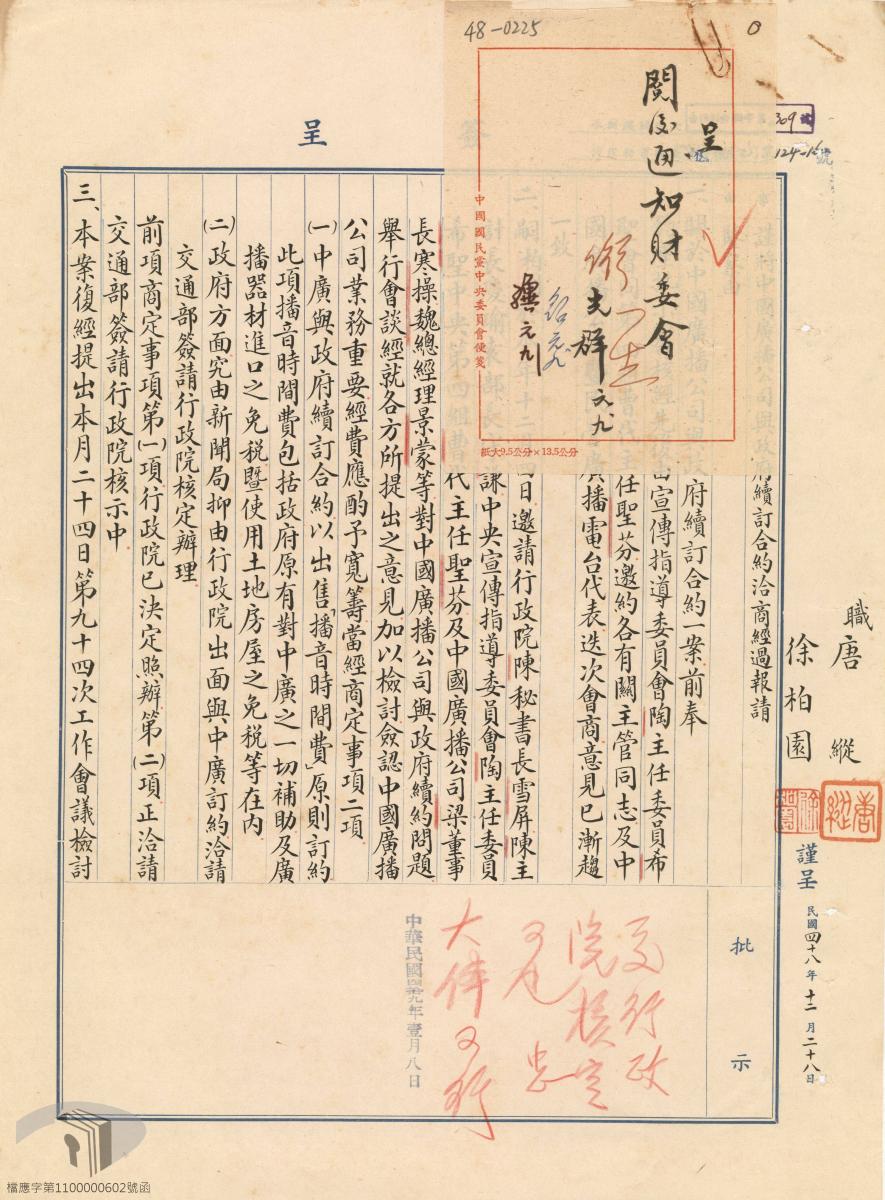 48-0225
呈
閱後通知財委會
群 元九
元九
中國國民黨中央委員會便箋
紙大9.5公分×13.5公分
309
124-16號
呈
職 唐縱
徐柏園
謹呈
民國四十八年十二月二十八日
府續訂合約洽商經過報請
府續訂合約一案前奉
由宣傳指導委員會陶主任委員布
任聖芬邀約各有關主管同志及中
廣播電台代表迭次會商意見已漸趨
日邀請行政院陳秘書長雪屏陳主
謙中央宣傳指導委員會陶主任委員
代主任聖芬及中國廣播公司梁董事
長寒操魏總經理景蒙等對中國廣播公司與政府續約問題
舉行會談經就各方所提出之意見加以檢討僉認中國廣播
公司業務重要經費應酌予寬籌當經商定事項二項
㈠中廣與政府續訂合約以出售「播音時間費」原則訂約
此項播音時間費包括政府原有對中廣之一切補助及廣
播器材進口之免稅暨使用土地房屋之免稅等在內
㈡政府方面究由新聞局抑由行政院出面與中廣訂約洽請
交通部簽請行政院核定辦理
前項商定事項第㈠項行政院已決定照辦第㈡項正洽請
交通部簽請行政院核示中
三、本案復經提出本月二十四日第九十四次工作會議檢討
批示
交行政
院核定
可也
大偉可行
中華民國四十九年壹月八日
檔應字第1100000602號函